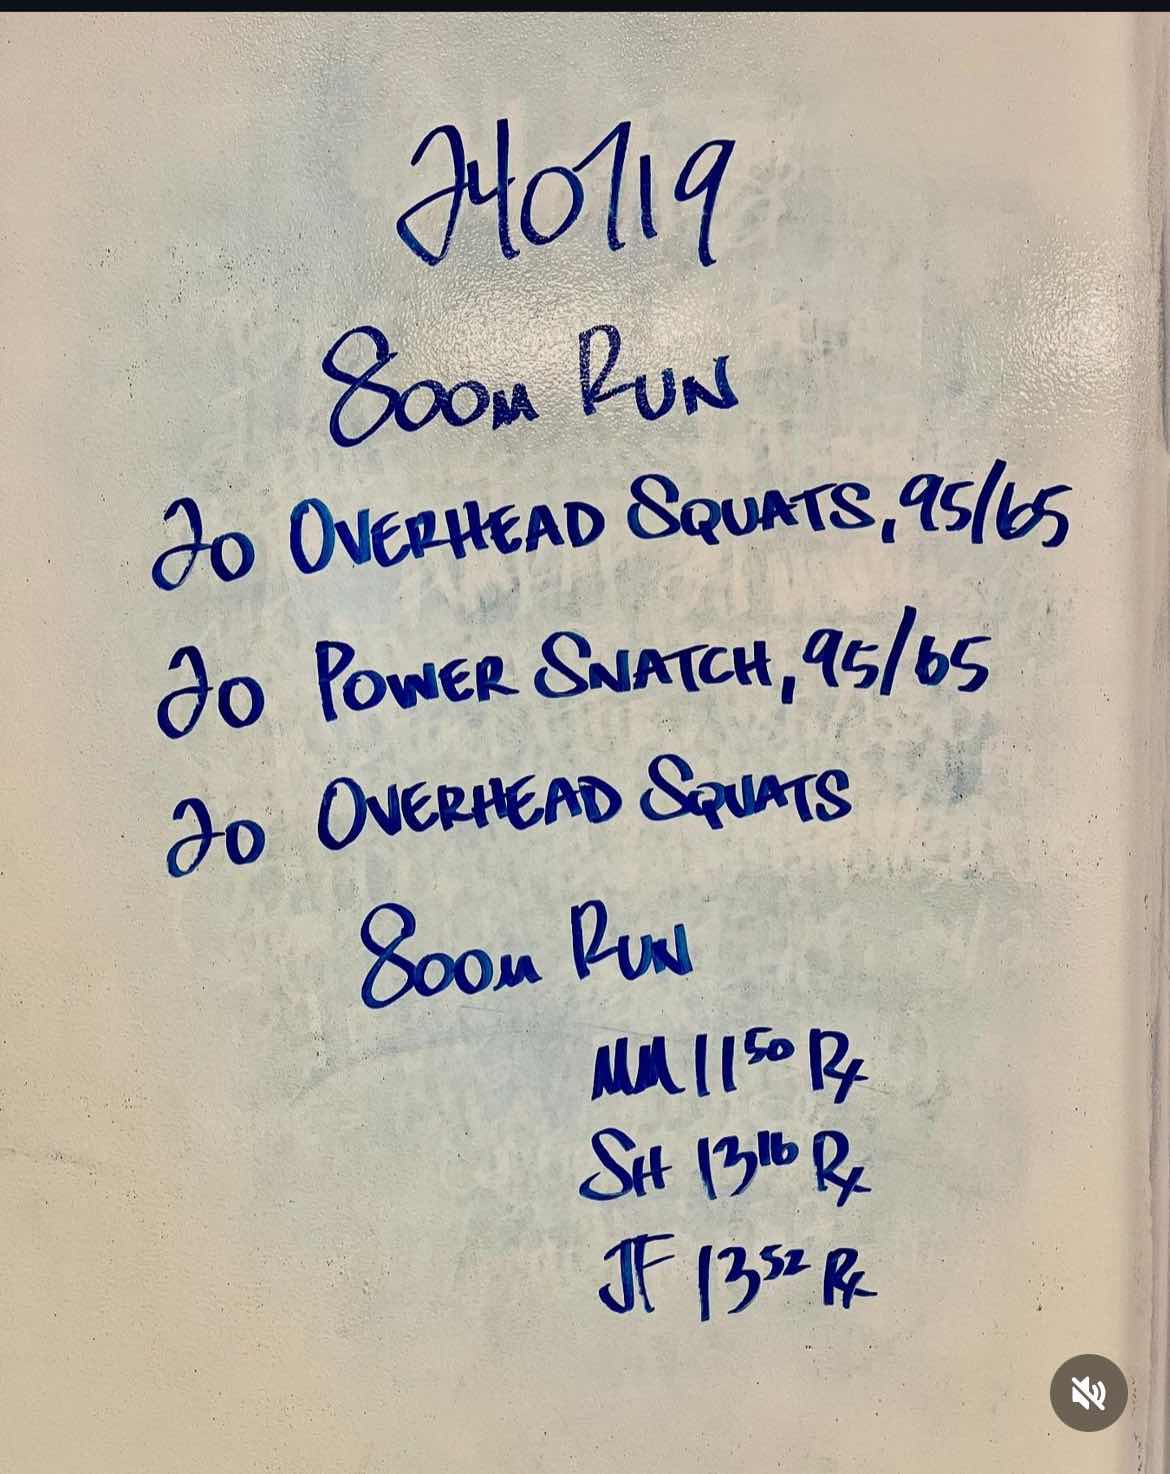 240719
800m Run
20 Overhead Squats, 95/65
20 Power Snatch, 95/65
20 Overhead Squats
800m Run
MM 11 50 Rx
SH 13 16 Rx
JF 13 52 Rx